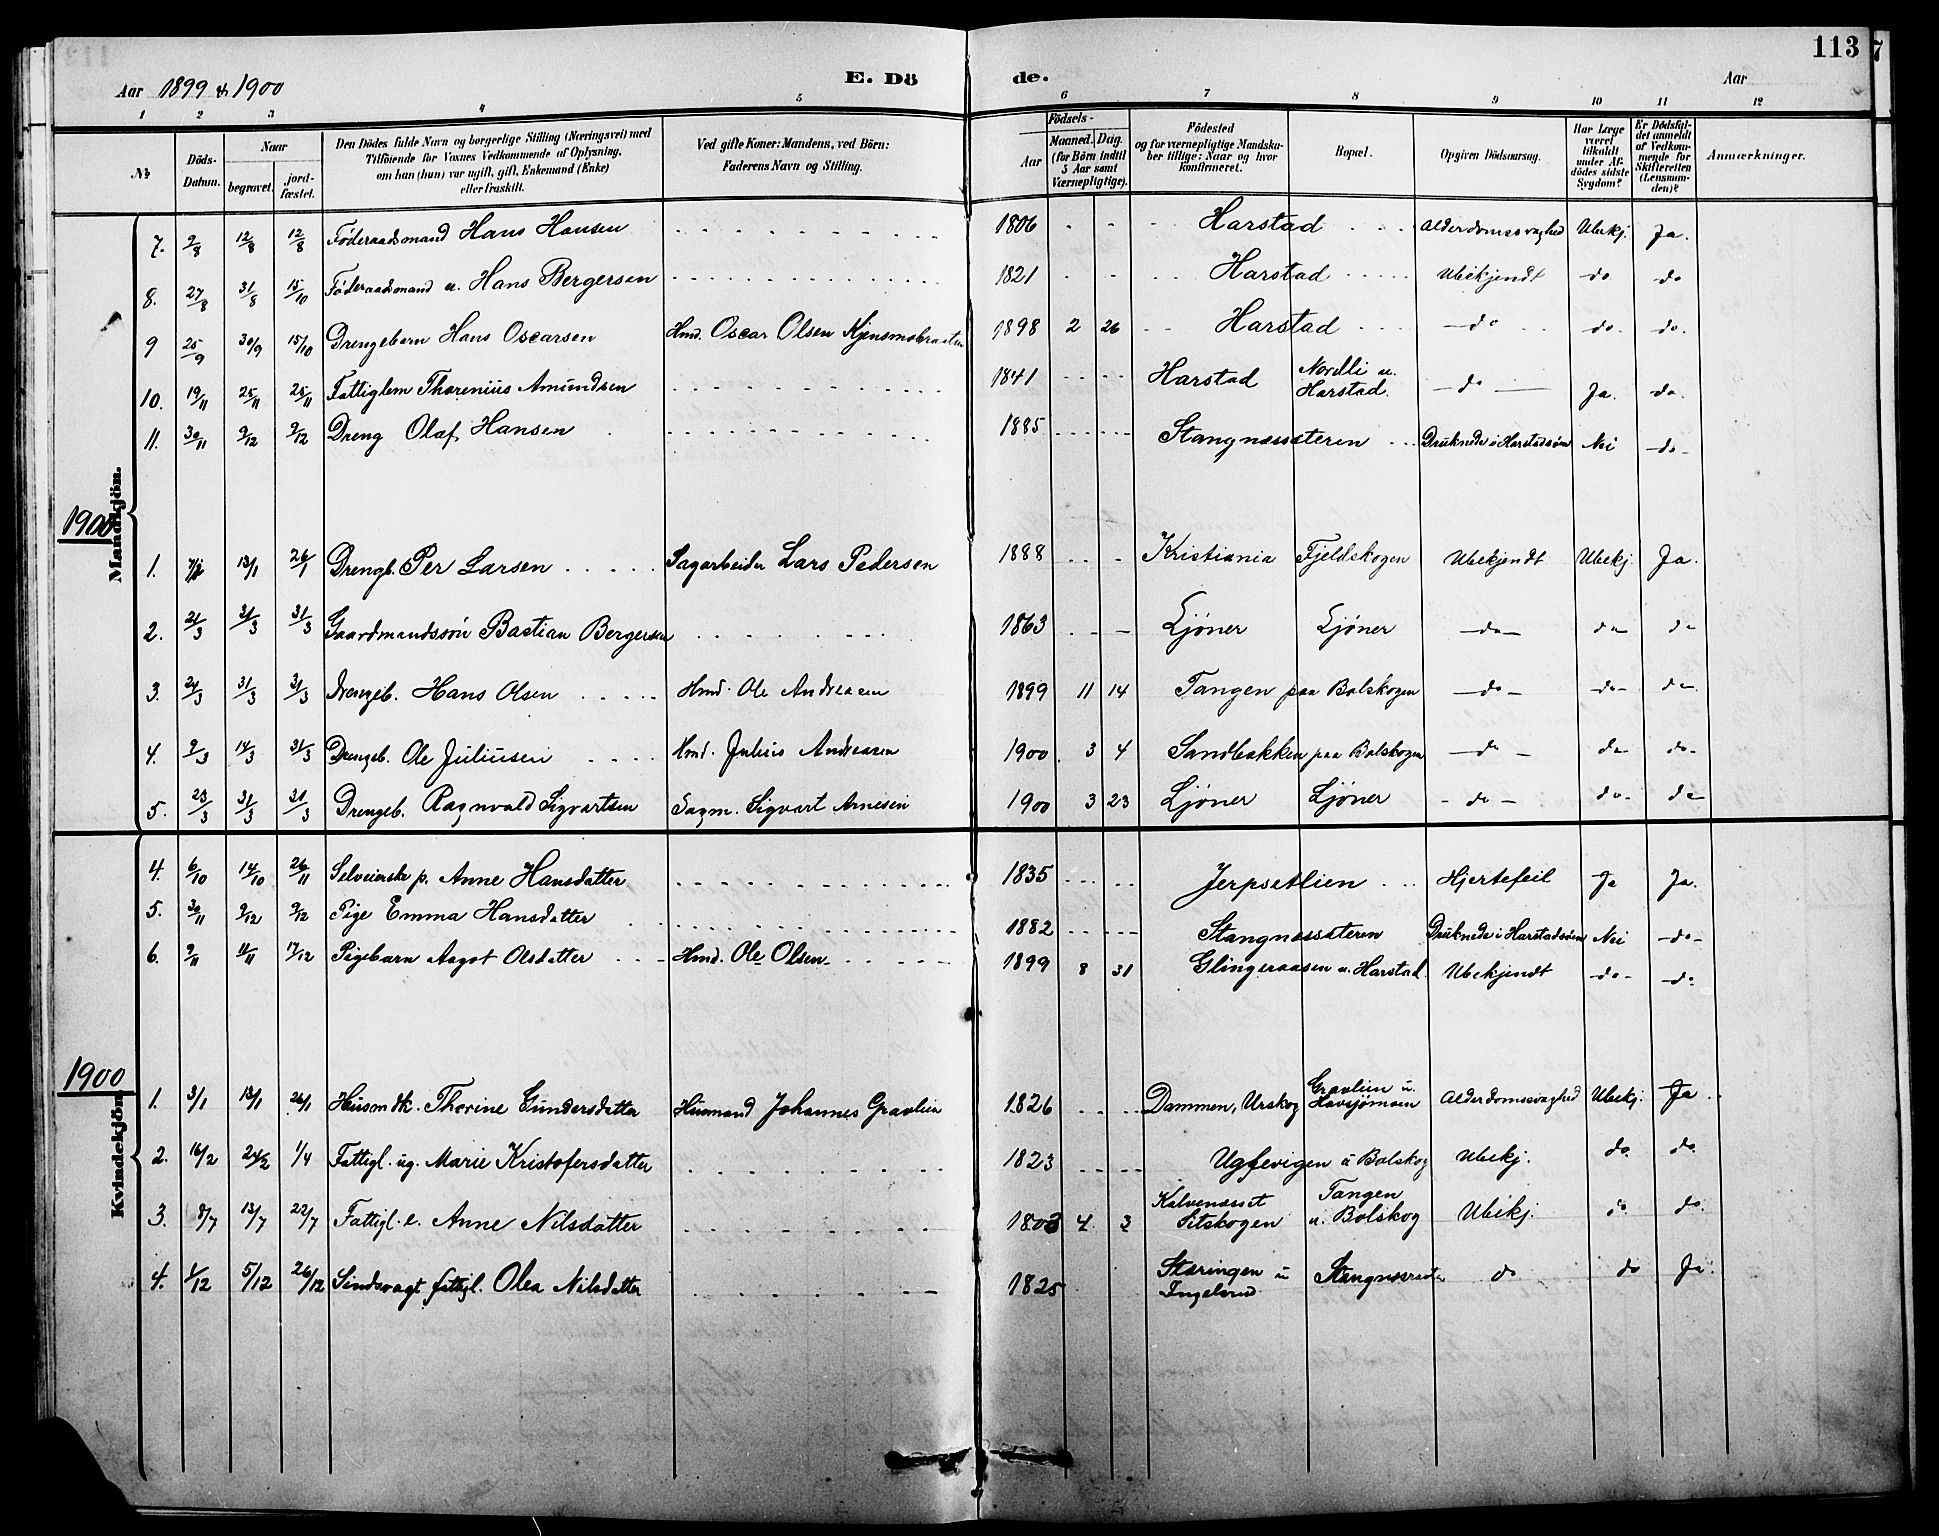 113
Aar 1899 & 1900 E. Dö de. Aar
1 2 3 4 5 6 7 8 9 10 11 12
№ Döds-Datum. Naar begravet. jord-fæstet. Den Dödes fulde Navn og borgerlige Stilling (Næringsvei) med Tilföiende for Voxnes Vedkommende af Oplysning, om han (hun) var ugift, gift, Enkemand (Enke) eller fraskilt. Ved gifte Koner: Mandens, ved Börn: Faderens Navn og Stilling. Födsels- Aar Maaned. Dag. (for Börn indtil 5 Aar samt Værnepligtige). Födested og for værnepligtige Mandska-ber tillige: Naar og hvor konfirmeret. Bopæl. Opgiven Dödsaarsag. Har Læge været tilkaldt under Af-dödes sidste Sygdom? Er Dödsfal-det anmeldt af Vedkom-mende for Skifteretten (Lensman-den)? Anmærkninger.
Mandkjön.
7. 9/8 12/8 12/8 Föderaadsmand Hans Hansen 1806 Harstad Alderdomssvaghed Ubekj. Ja.
8. 27/8 31/8 15/10 Föderaadsmand u. Hans Bergersen 1821 Harstad Ubekjendt do do
9 25/9 30/9 15/10 Drengebarn Hans Oscarsen Hmd. Oscar Olsen Kjensmobraaten 1898 2 26 Harstad do do. do.
10. 19/11 25/11 25/11 Fattiglem Thorenius Amundsen 1841 Harstad Nordli u. Harstad. do Ja. do.
11. 30/11 9/12 9/12 Dreng Olaf Hansen 1885 Stangnessæteren Druknede i Harstadsöen Nei do
1900
1. 13/1 26/1 Drengb. Per Larsen Sagarbeider Lars Pedersen 1888 Kristiania Fjeldskogen Ubekjendt Ubekj. Ja.
2. 21/3 31/3 31/3 Gaardmandssön Bastian Bergersen 1863 Ljöner Ljöner do do do
3. 24/3 31/3 31/3 Drengeb. Hans Olsen Hmd. Ole Andreasen 1899 11 14 Tangen paa Bolskogen do do do
4. 9/3 14/3 31/3 Drengeb. Ole Juliussen Hmd. Julius Andreasen 1900. 3 4 Sandbakken paa Bolskogen do do do
5. 23/3 31/3 31/3 Drengeb. Ragnvald Sigvartsen Sagm. Sigvart Arnesen 1900 3 23 Ljöner Ljöner do do do
Kvindekjön.
4. 6/10 14/10 26/11 Selveierske p. Anne Hansdatter 1835 Jerpsetlien Hjertefeil Ja Ja.
5. 30/11 9/12 9/12 Pige Emma Hansdatter 1882 Stangnessæteren Druknede i Harstadsöen Nei do
6. 9/11 11/11 17/12 Pigebarn Aagot Olsdatter Hmd. Ole Olsen 1899 8 31 Glingeraasen u. Harstad Ubekjendt do do
1900
1. 3/1 13/1 26/1 Husmdk. Thorine Gundersdatter Husmand Johannes Gravlien 1826 Dammen, Urskog Gravlien u. Havsjömoen Alderdomssvaghed Ubekj. Ja.
2. 16/2 24/2 1/4 Fattigl. ug. Marie Kristofersdatter 1823 Ugfevigen u Bolskog Ubekj. do. do.
3. 8/7 13/7 22/7 Fattigl. e. Anne Nilsdatter 1803 4 3 Kalvenæsset Setskogen Tangen u. Bolskog Ubekj. do do.
4. 1/12 5/12 26/12 Sindsvagt fattigl. Olea Nilsdatter 1825 Stæringen u Ingelsrud Stangnessæter do do Ja.